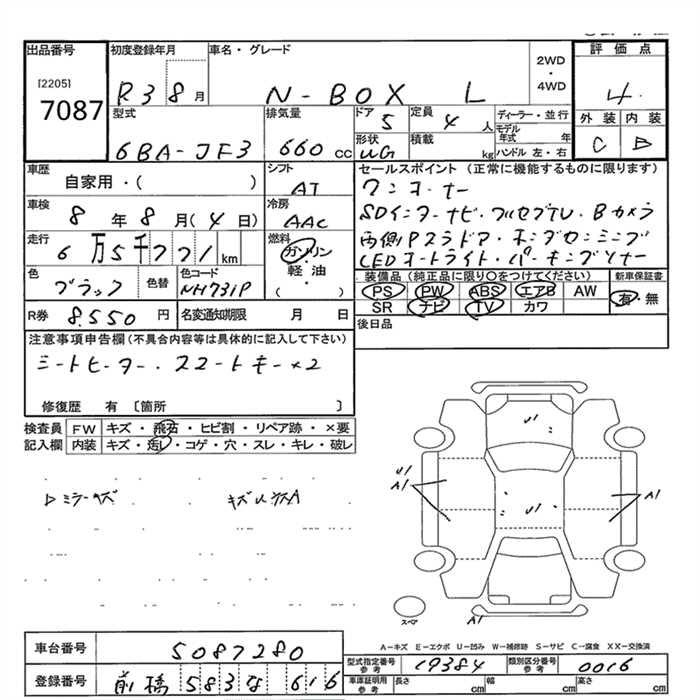 出品番号
[2205]
7087
初度登録年月
R3 8月
車名・グレード
N-BOX L
2WD
・
4WD
評価点
4
外装 内装
C B
型式
6BA-JF3
排気量
660 cc
ドア
5
定員
4 人
ディーラー・並行
モデル年式 年
ハンドル 左・右
形状
UG
積載
kg
車歴
自家用・( )
シフト
AT
車検
8年 8月(4日)
冷房
AAC
走行
6万5千771km
燃料
ガソリン
・
軽・油
( )
色
ブラック
色替
色コード
NH731P
R券
8,550円
名変通知期限 月 日
セールスポイント(正常に機能するものに限ります)
ワンオーナー
SDインターナビ・フルセグTV・Bカメラ
両側Pスラドア・ホンダセンシング
LEDオートライト・パーキングソナー
装備品(純正品に限り○をつけてください)
PS PW ABS エアB AW
SR ナビ TV カワ
新車保証書
有・無
後日品
注意事項申告欄(不具合内容等は具体的に記入して下さい)
シートヒーター・スマートキー×2
修復歴 有〔箇所 〕
検査員
記入欄
FW キズ・飛石・ヒビ割・リペア跡・×要
内装 キズ・汚レ・コゲ・穴・スレ・キレ・破レ
ミラーキズ
U1
U1
U1
A1
A1
A1
スペア
A-キズ E-エクボ U-凹み W-補修跡 S-サビ C-腐食 XX-交換済
車台番号
5087280
登録番号
前橋 583 な 616
型式指定番号
参考
19384
類別区分番号
参考
0016
車庫証明用
参考
長さ cm
幅 cm
高さ cm